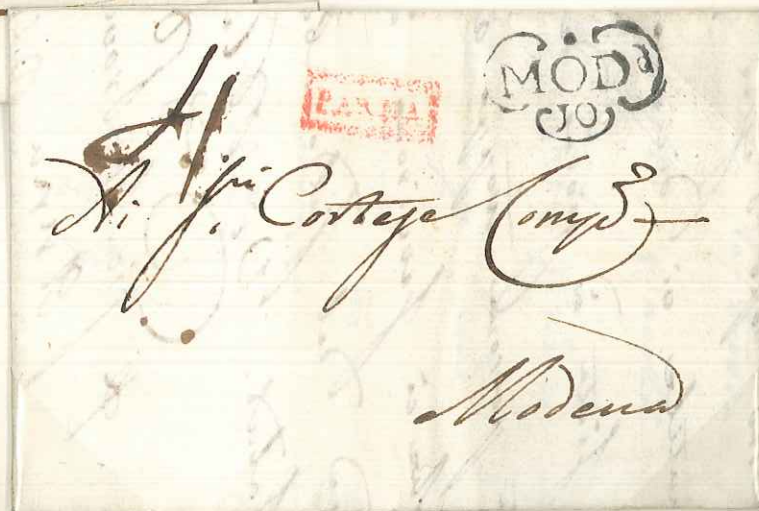 4
PARMA
MODᵃ
10
Ai Sri. Cortese Comp.
Modena